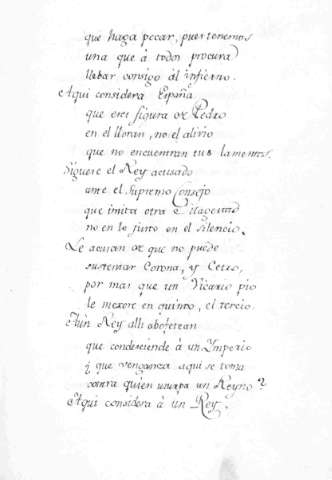 que haga pecar, pues tenemos
una que á todos procura
llebar consigo ál infierno.
Aqui considera España
que eres figura de Pedro
en el lloran, no el alivio
que no encuentran tus lamentos.
Siguese el Rey acusado
ante el Supremo Consejo
que imita otra Magestad
no en lo justo en el silencio.
Le acusan de que no puede
sustentar Corona, y Cetro,
por mas que un Vicario pio
le mexore en quinto, el tercio.
Aún Rey alli abofetean
que condesciende á un Imperio
y que venganza aqui se toma
contra quien usurpa un Reyno?
Aqui considera á un Rey.